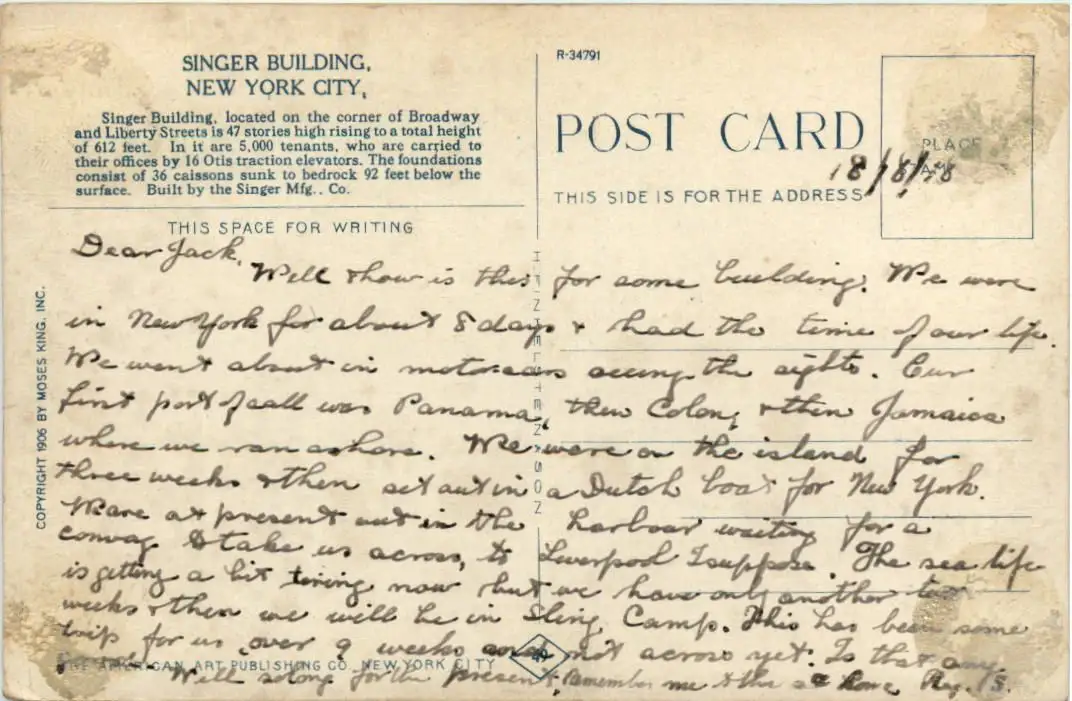 SINGER BUILDING,
NEW YORK CITY,
Singer Building, located on the corner of Broadway
and Liberty Streets is 47 stories high rising to a total height
of 612 feet. In it are 5,000 tenants, who are carried to
their offices by 16 Otis traction elevators. The foundations
consist of 36 caissons sunk to bedrock 92 feet below the
surface. Built by the Singer Mfg.. Co.
R-34791
POST CARD
PLACE
18/8/18
THIS SIDE IS FOR THE ADDRESS
THIS SPACE FOR WRITING
COPYRIGHT 1906 BY MOSES KING, INC.
Dear Jack,
Well & how is this for some building. We were
in New York for about 8 days & had the time of our life.
We went about in motorcars seeing the sights. Our
first port of call was Panama, then Colon, & then Jamaica
where we ran ashore. We were on the island for
three weeks & then set out in a Dutch boat for New York.
We are at present out in the harbour waiting for a
convoy to take us across, to Liverpool I suppose. The sea life
is getting a bit tiring now but we have only another two
weeks & then we will be in Sling Camp. This has been some
trip for us over 9 weeks not across yet. Is that any
Well so long for the present, Remember me to the home Reg. S.
THE AMERICAN ART PUBLISHING CO. NEW YORK CITY